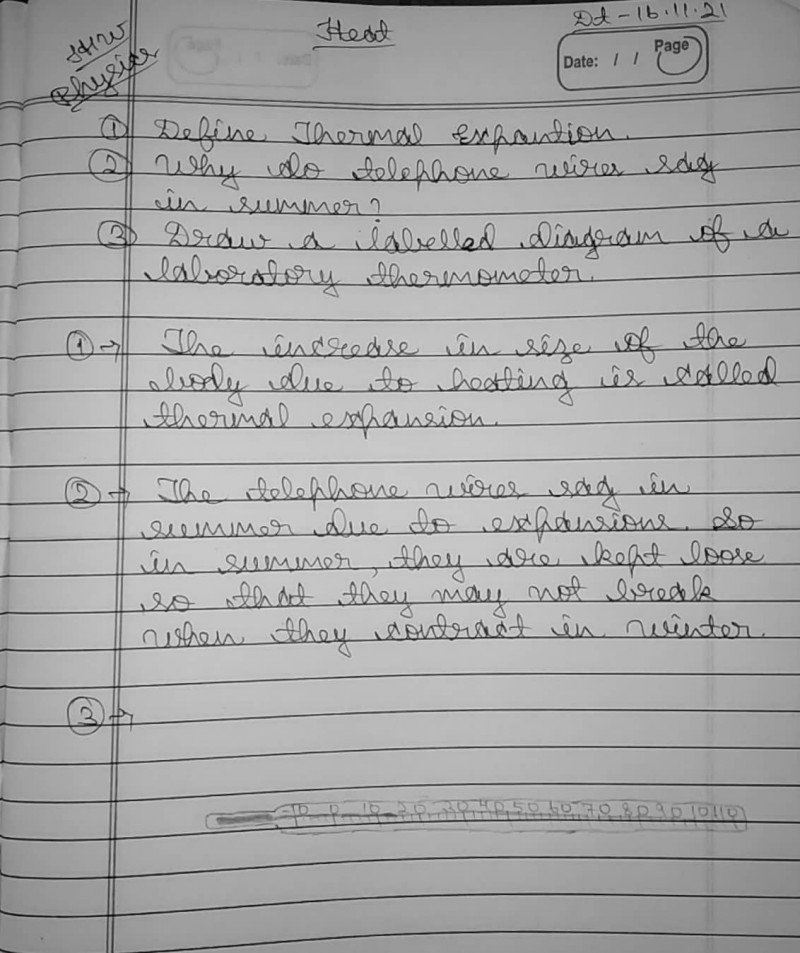 H.W
Physics
Heat
Dt - 16.11.21
Date: / / Page
① Define Thermal Expantion.
② Why do telephone wires sag
in summer?
③ Draw a labelled diagram of a
laboratory thermometer.
①→ The increase in size of the
body due to heating is called
thermal expansion.
②→ The telephone wires sag in
summer due to expansions. So
in summer, they are kept loose
so that they may not break
when they contract in winter.
③→
-10 0 10 20 30 40 50 60 70 80 90 100 110